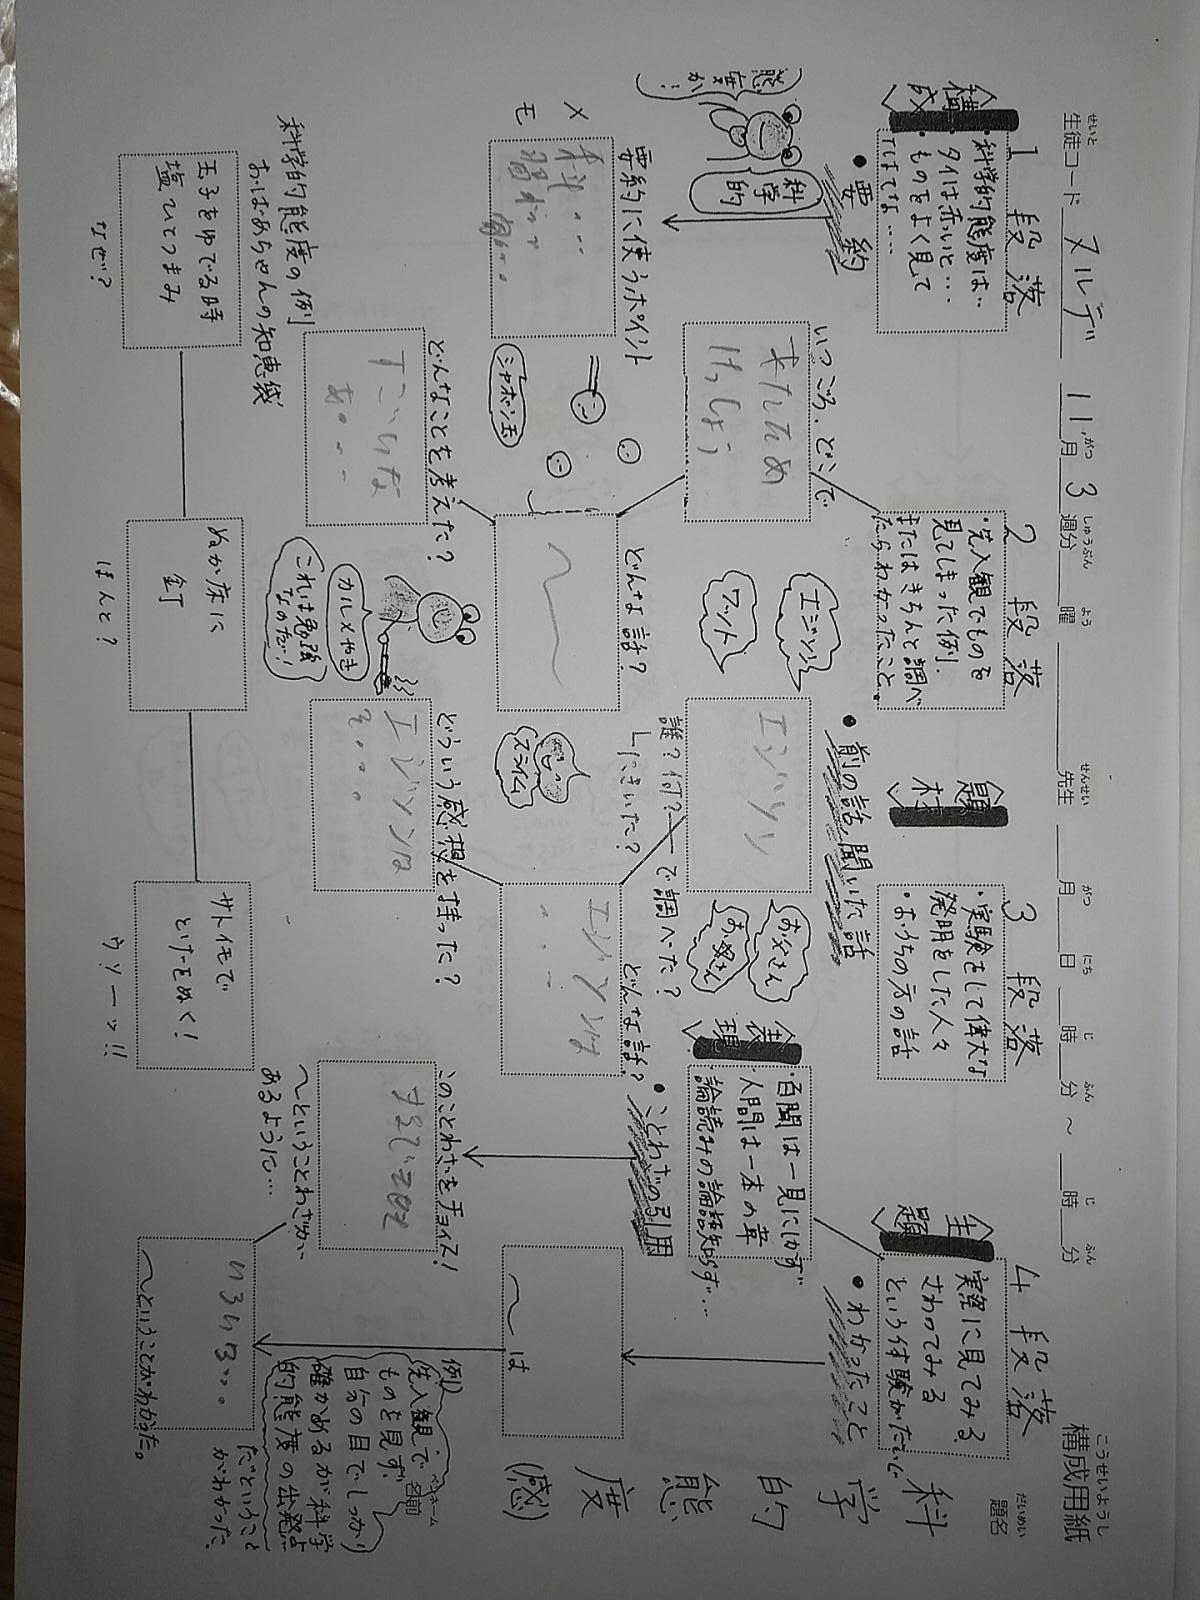 構成用紙
こうせいようし
生徒コード ヌルデ 11月3週分 曜 先生 月 日 時 分 ~ 時 分
せいと がつ しゅうぶん よう せんせい がつ にち じ ふん じ ふん
題名
だいめい
科学的態度(感)
ペンネーム
名前
1段落
構成
・科学的態度は‥
タイは赤いと…
ものをよく見て
・要約
科学的
態度か!
要約に使うポイント
メモ
2段落
・先入観でものを
見てしまった例.
またはきちんと調べ
たらわかったこと。
いつころ、どこで
どんな話?
どんなことを考えた?
エジソン
ワット
シャボン玉
カルメやき
これは勉強
なのだ!
題材
・前の話、聞いた話
3段落
・実験をして偉大な
発明をした人々
・おうちの方の話
誰?何?―で調べた?
にきいた?
エジソン
お父さん
お母さん
どんな話?
エジソンは
スライム
どういう感想を持った?
エジソンは
表現
百聞は一見にしかず
人間は一本の葦
論語読みの論語知らず…
・ことわざの引用
このことわざをチョイス!
~ということわざが
あるように…
4段落
主題
実際に見てみる
さわってみる
という体験がたいせつ
・わかったこと
~は
~ということがわかった。
例)
先入観で
ものを見ず、
自分の目でしっかり
確かめるが科学
的態度の出発点
だということ
がわかった
科学的態度の例
おばあちゃんの知恵袋
玉子をゆでる時
塩ひとつまみ
なぜ?
ぬか床に
釘
ほんと?
サトイモで
とげをぬく!
ウソーッ!!